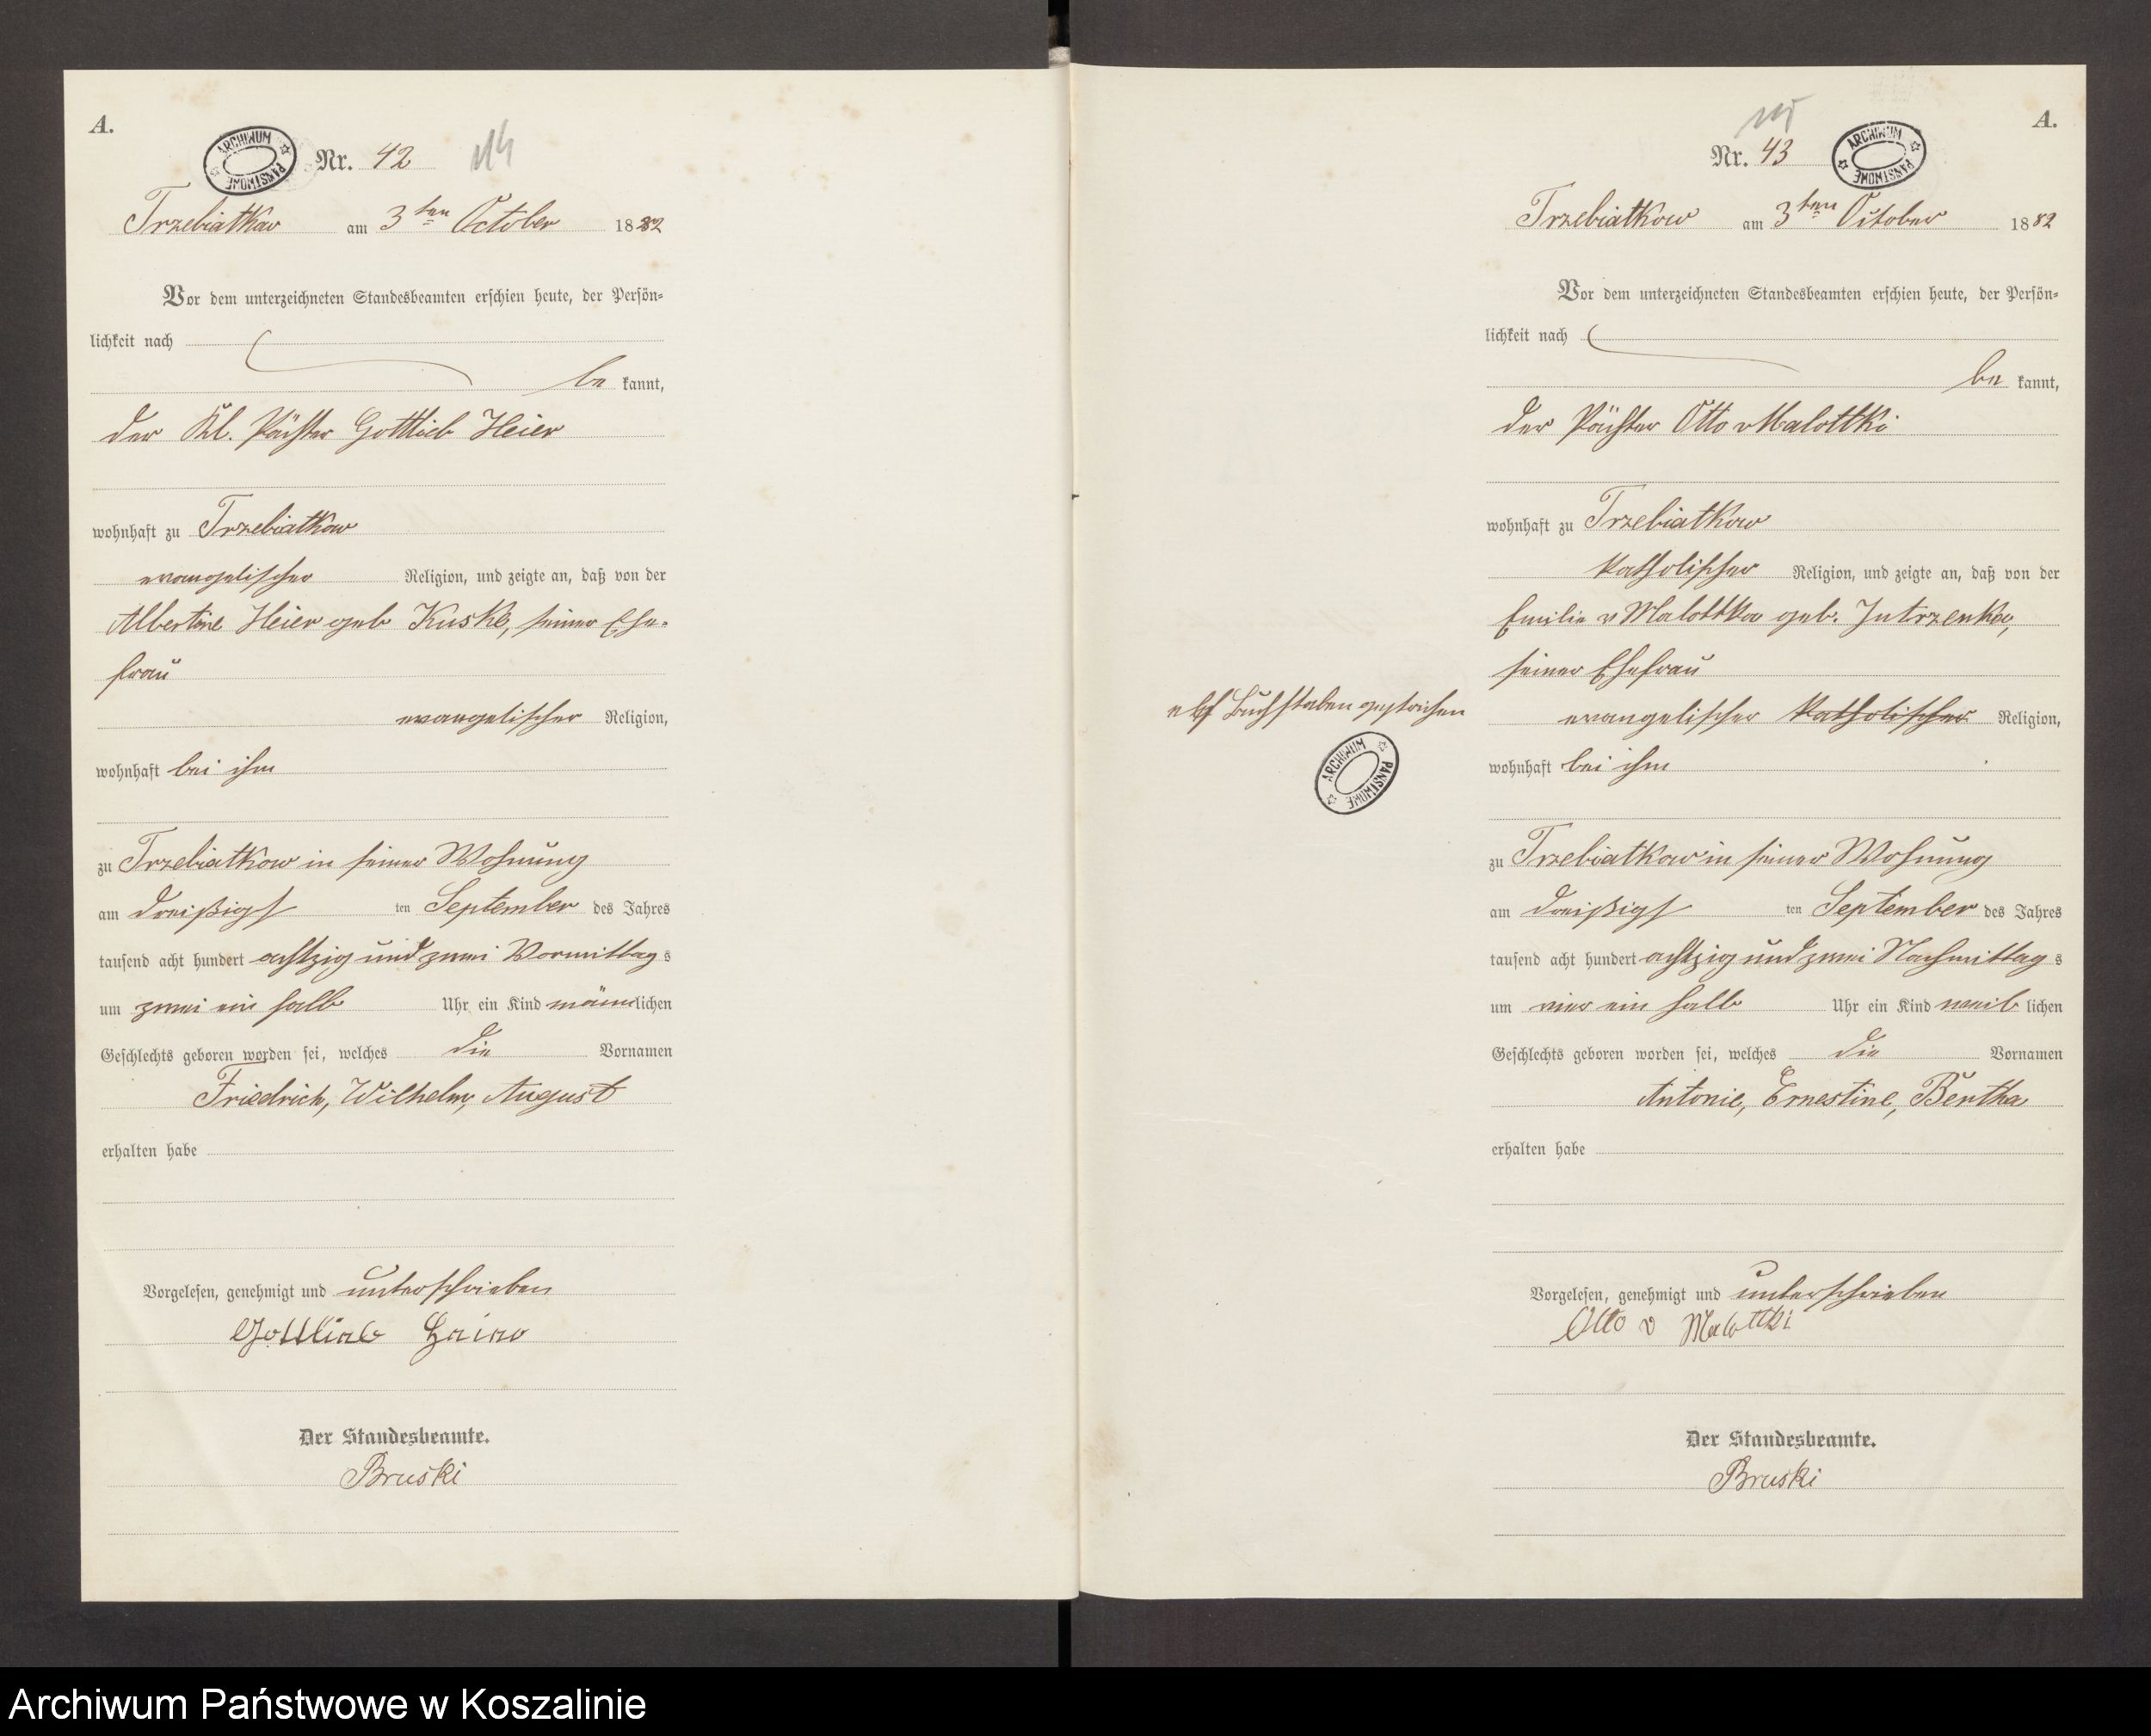 A.
ARCHIWUM PAŃSTWOWE
Nr. 42
Trzebiatkow am 3ten October 1882
Vor dem unterzeichneten Standesbeamten erschien heute, der Persön-
lichkeit nach
be kannt,
der Kl. Pächter Gottlieb Heier
wohnhaft zu Trzebiatkow
evangelischer Religion, und zeigte an, daß von der
Albertine Heier geb Kuske, seiner Ehe-
frau
evangelischer Religion,
wohnhaft bei ihm
zu Trzebiatkow in seiner Wohnung
am dreißigs ten September des Jahres
tausend acht hundert achtzig und zwei Vormittag s
um zwei ein halb Uhr ein Kind männlichen
Geschlechts geboren worden sei, welches die Vornamen
Friedrich, Wilhelm, August
erhalten habe
Vorgelesen, genehmigt und unterschrieben
Gottlieb Heier
Der Standesbeamte.
Bruski
A.
Nr. 43
ARCHIWUM PAŃSTWOWE
Trzebiatkow am 3ten October 1882
Vor dem unterzeichneten Standesbeamten erschien heute, der Persön-
lichkeit nach
be kannt,
der Pächter Otto v Malottki
wohnhaft zu Trzebiatkow
katholischer Religion, und zeigte an, daß von der
Emilie v Malottka geb. Jutrzenka,
seiner Ehefrau
elf Buchstaben gestrichen
evangelischer katholischer Religion,
ARCHIWUM PAŃSTWOWE
wohnhaft bei ihm
zu Trzebiatkow in seiner Wohnung
am dreißigs ten September des Jahres
tausend acht hundert achtzig und zwei Nachmittag s
um vier ein halb Uhr ein Kind weib lichen
Geschlechts geboren worden sei, welches die Vornamen
Antonie, Ernestine, Bertha
erhalten habe
Vorgelesen, genehmigt und unterschrieben
Otto v Malottki
Der Standesbeamte.
Bruski
Archiwum Państwowe w Koszalinie